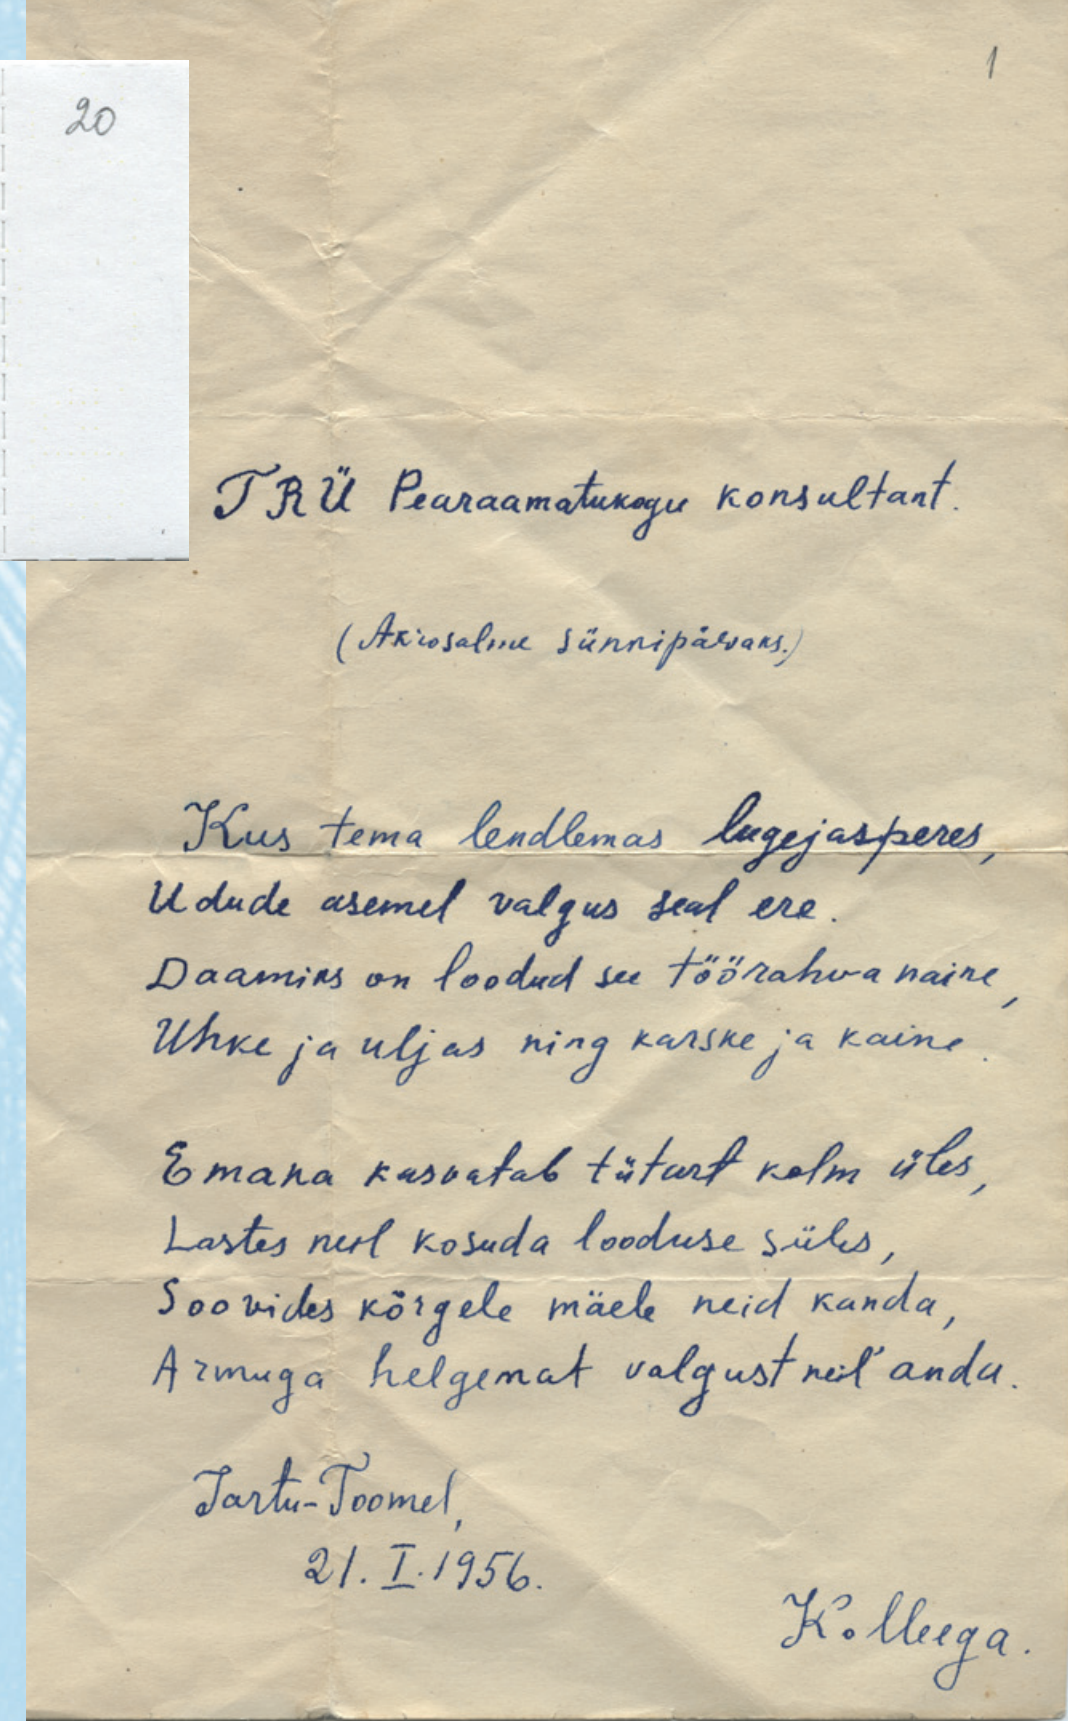 1
20
TRÜ Pearaamatukogu konsultant.
(Akrosalme sünnipäevaks.)
Kus tema lendlemas lugejasperes,
Udude asemel valgus seal ere.
Daamiks on loodud see töörahva naine,
Uhke ja uljas ning karske ja kaine.
Emana kasvatab tütart kolm üles,
Lastes neil kosuda looduse süles,
Soovides kõrgele mäele neid kanda,
Armuga helgemat valgust neil' anda.
Tartu-Toomel,
21. I. 1956.
Kolleega.